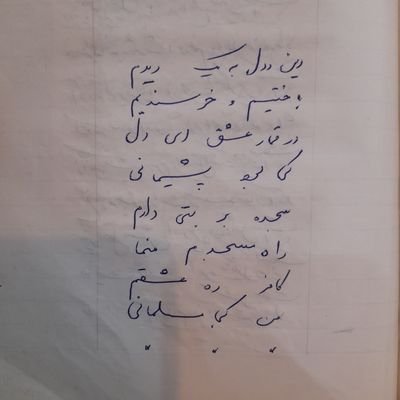 دین و دل به یک دیدم
باختیم و خرسندیم
در قمار عشق ای دل
کی بود پشیمانی
سجده بر بتی دارم
راه مسجدم منما
کافر ره عشقم
من کجا مسلمانی